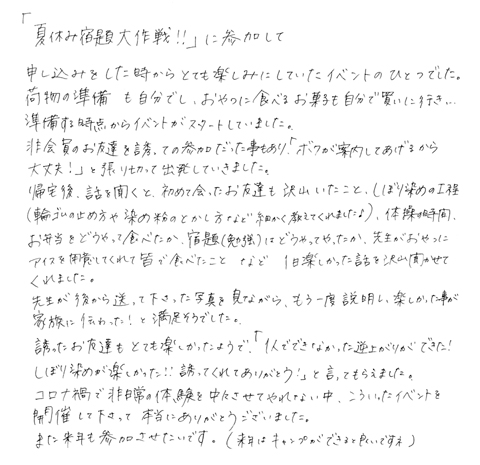 「夏休み宿題大作戦!!」に参加して
申し込みをした時からとても楽しみにしていたイベントのひとつでした。
荷物の準備も自分でし、おやつに食べるお菓子も自分で買いに行き…
準備する時点からイベントがスタートしていました。
非会員のお友達を誘っての参加だった事もあり「ボクが案内してあげるから
大丈夫!」と張り切って出発していきました。
帰宅後、話を聞くと、初めて会ったお友達も沢山いたこと、しぼり染めの工程
(輪ゴムの止め方や染め粉のとかし方など細かく教えてくれましたよ)、体操の時間、
お弁当をどうやって食べたか、宿題(勉強)はどうやってやったか、先生がおやつに
アイスを用意してくれて皆で食べたこと など 1日楽しかった話を沢山聞かせて
くれました。
先生が後から送って下さった写真を見ながら、もう一度説明し、楽しかった事が
家族に伝わった!と満足そうでした。
誘ったお友達もとても楽しかったようで、「1人でできなかった逆上がりができた!
しぼり染めが楽しかった!!誘ってくれてありがとう!」と言ってもらえました。
コロナ禍で非日常の体験を中々させてやれない中、こういったイベントを
開催して下さって本当にありがとうございました。
また来年も参加させたいです。(来年はキャンプができると良いですネ)